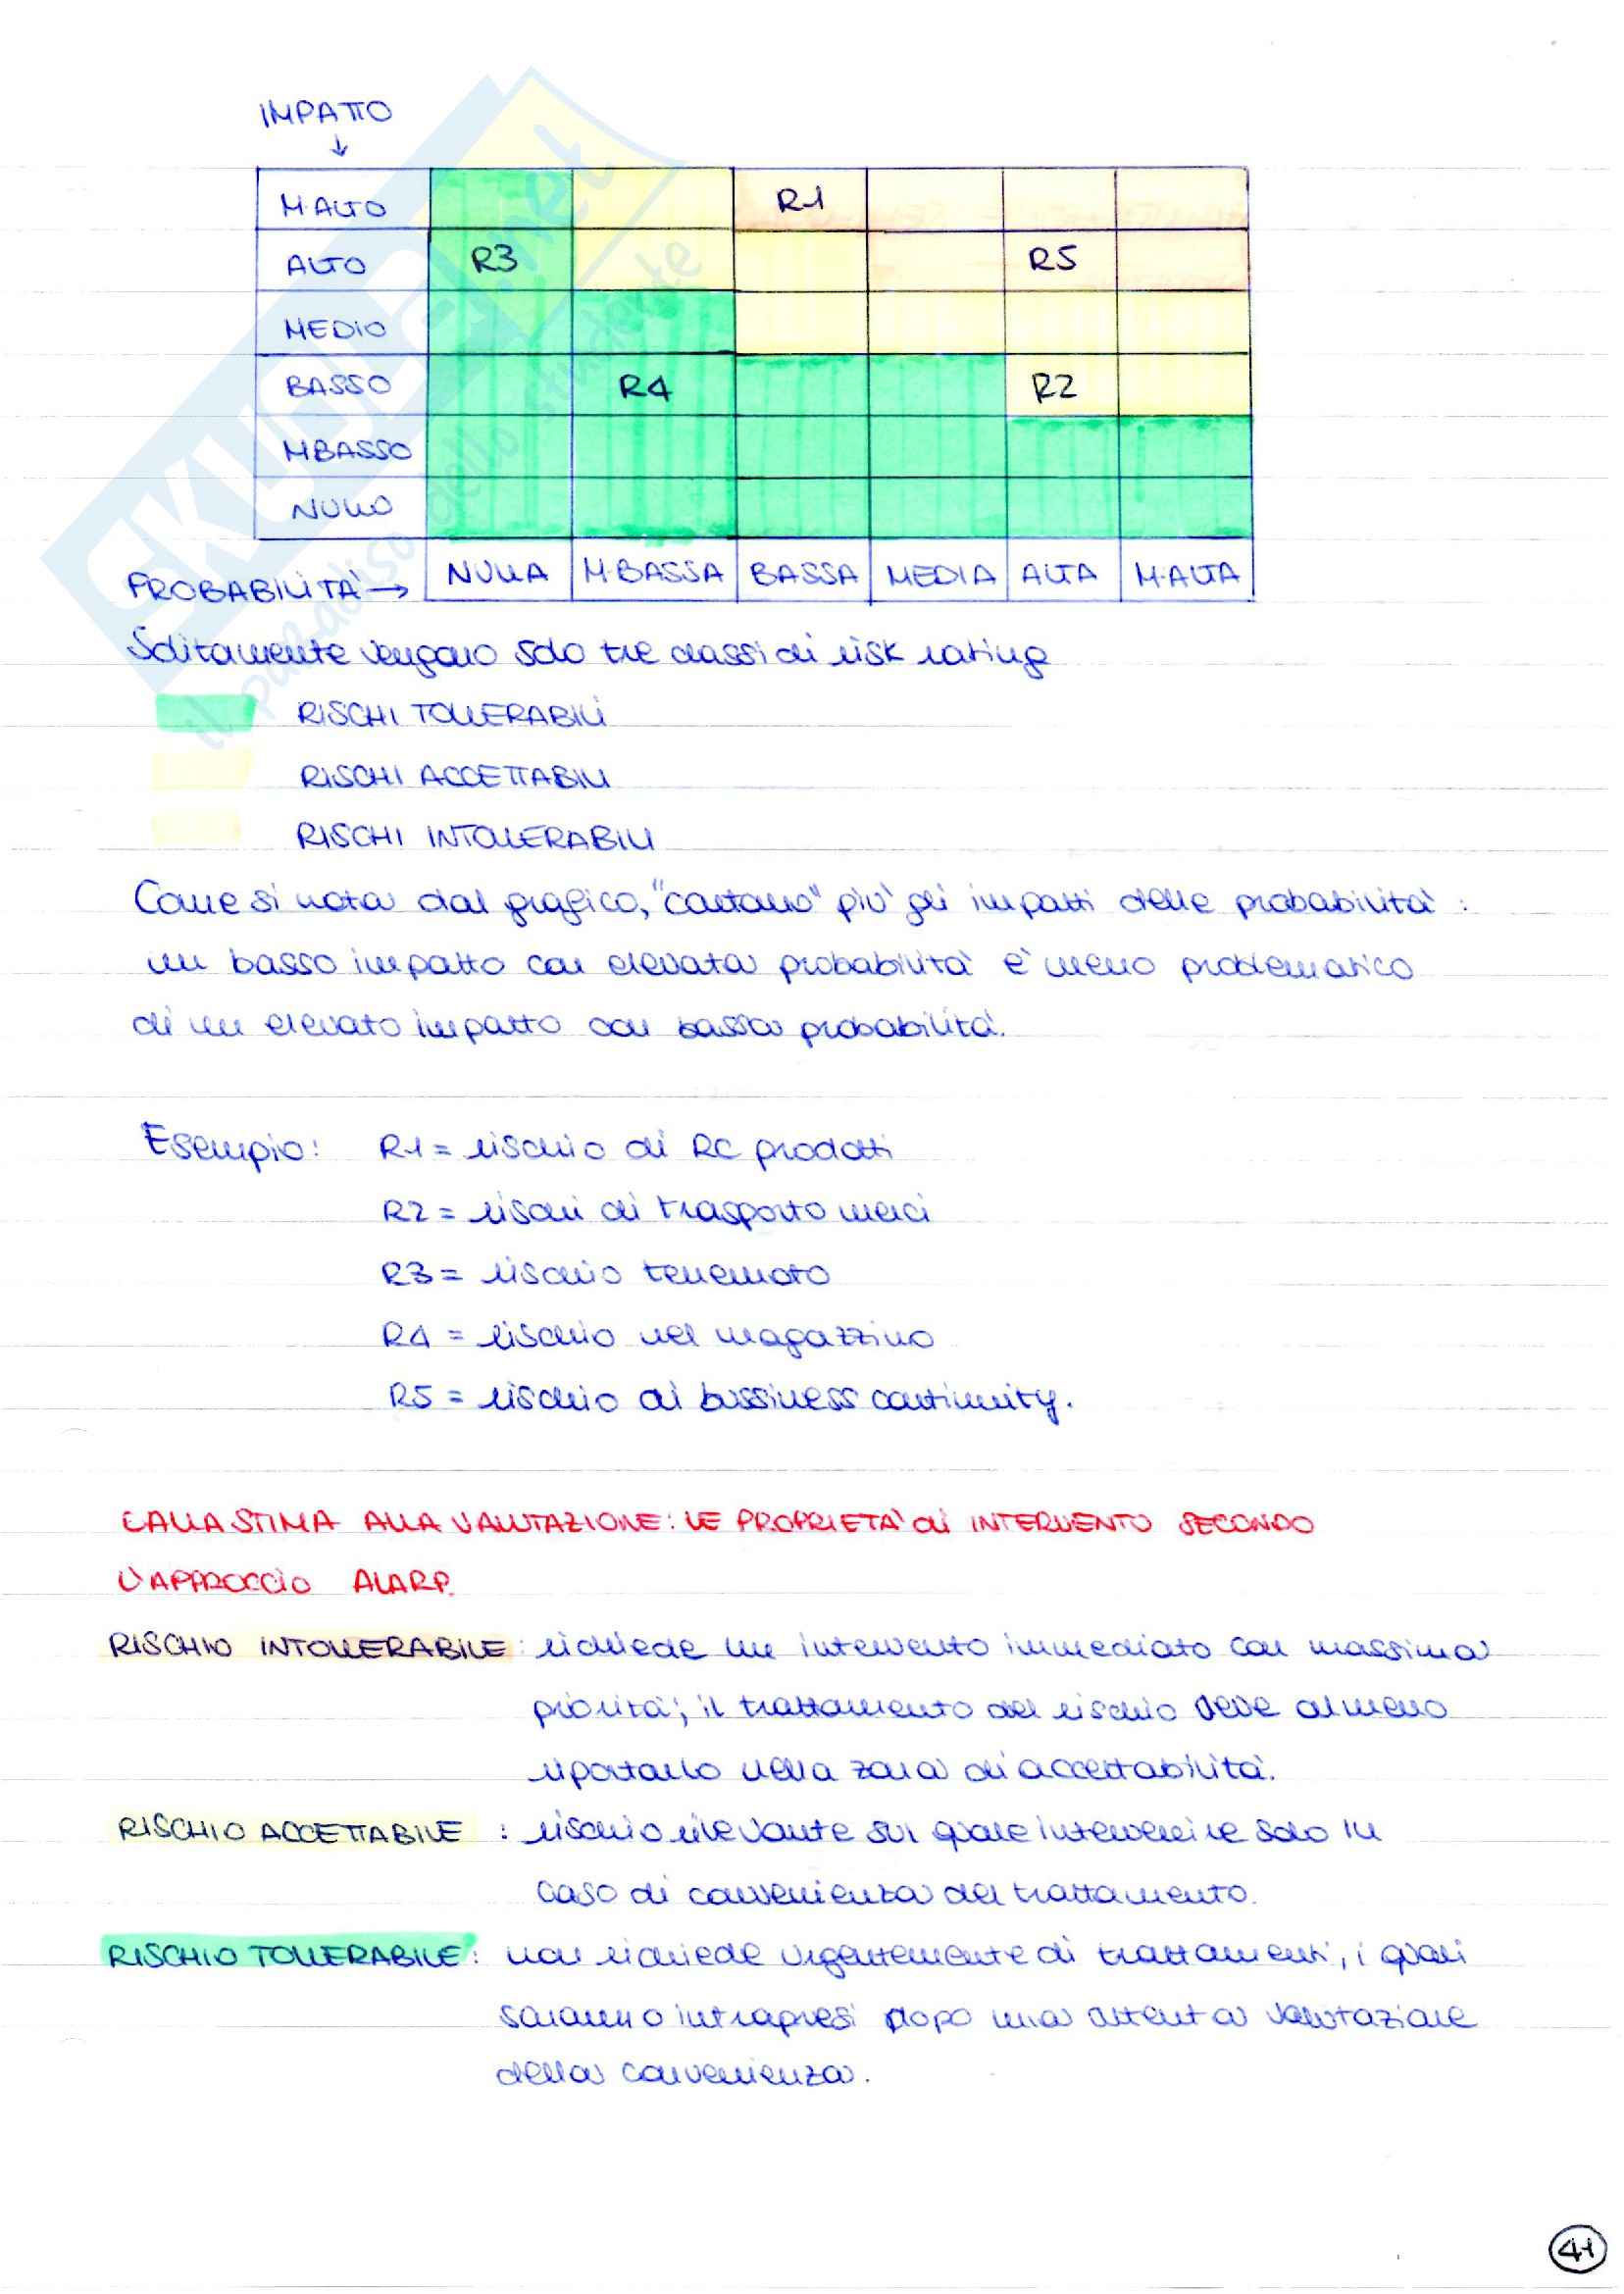 IMPATTO
↓
M.ALTO R1
ALTO R3 R5
MEDIO
BASSO R4 R2
M.BASSO
NULLO
PROBABILITÀ → NULLA M.BASSA BASSA MEDIA ALTA M.ALTA
Solitamente vengono solo tre classi di risk rating
RISCHI TOLLERABILI
RISCHI ACCETTABILI
RISCHI INTOLLERABILI
Come si nota dal grafico, "contano" più gli impatti delle probabilità :
un basso impatto con elevata probabilità è meno problematico
di un elevato impatto con bassa probabilità.
Esempio: R1 = rischio di RC prodotti
R2 = rischi di trasporto merci
R3 = rischio terremoto
R4 = rischio nel magazzino
R5 = rischio di bussiness continuity.
DALLA STIMA ALLA VALUTAZIONE: LE PROPRIETÀ di INTERVENTO SECONDO
L'APPROCCIO ALARP.
RISCHIO INTOLLERABILE: richiede un intervento immediato con massima
priorità; il trattamento del rischio deve almeno
riportarlo nella zona di accettabilità.
RISCHIO ACCETTABILE : rischio rilevante sul quale intervenire solo in
caso di convenienza del trattamento.
RISCHIO TOLLERABILE: non richiede urgentemente di trattamenti, i quali
saranno intrapresi dopo una attenta valutazione
della convenienza.
41
SKUOLA.net
il paradiso dello studente